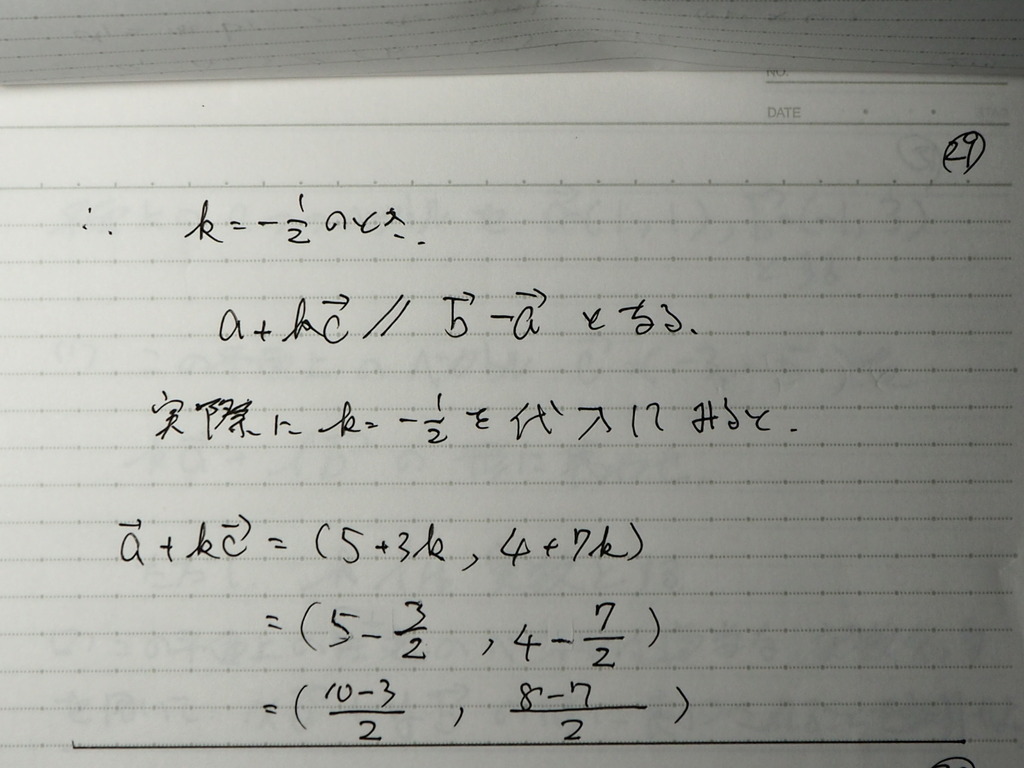 NO.
DATE
㉙
∴ k=-1/2 のとき.
a+kc→ // b→-a→ となる.
実際に k=-1/2 を代入してみると.
a→+kc→ = (5+3k, 4+7k)
= (5-3/2, 4-7/2)
= ((10-3)/2, (8-7)/2)